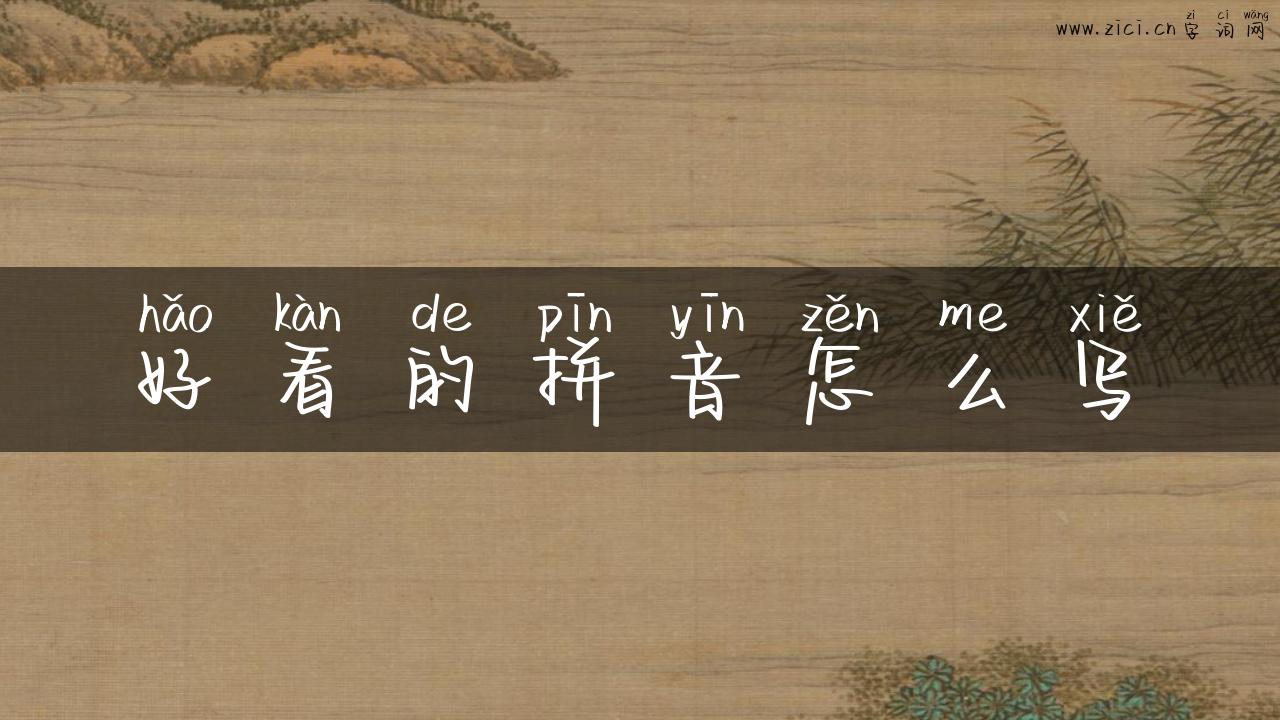 zì cí wǎng
www.zici.cn 字 词 网
hǎo kàn de pīn yīn zěn me xiě
好 看 的 拼 音 怎 么 写